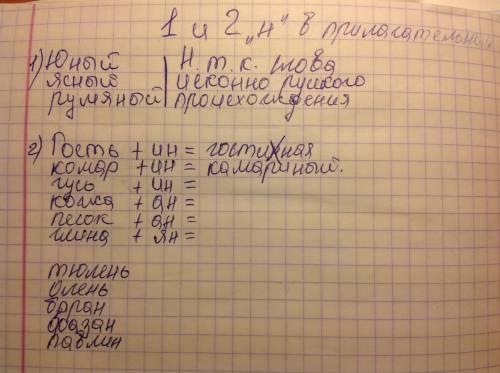 1 и 2 „н" в прилагательных
1) Юный | Н. т.к. слова
ясный | исконно руского
румяный | происхождения
2) Гость + ин = гостиная
комар + ин = камариный.
гусь + ин =
кожа + ан =
песок + ан =
глина + ян =
тюлень
олень
баран
фазан
павлин